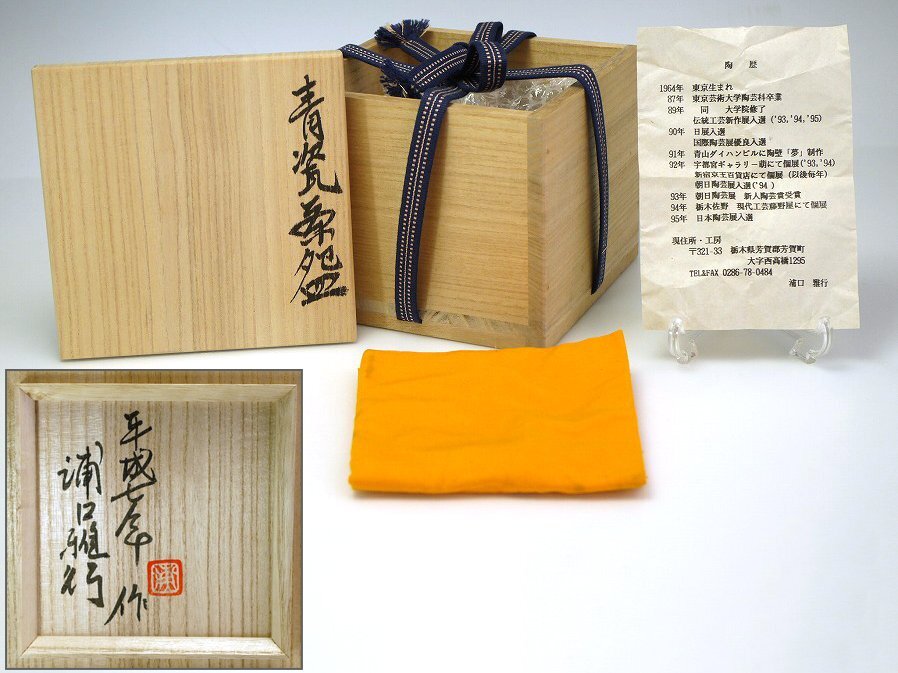 青瓷茶盌
陶 歴
1964年 東京生まれ
87年 東京芸術大学陶芸科卒業
89年 同 大学院修了
伝統工芸新作展入選('93,'94,'95)
90年 日展入選
国際陶芸展優良入選
91年 青山ダイハンビルに陶壁「夢」制作
92年 宇都宮ギャラリー萌にて個展('93,'94)
新宿京王百貨店にて個展(以後毎年)
朝日陶芸展入選('94)
93年 朝日陶芸展 新人陶芸賞受賞
94年 栃木佐野 現代工芸藤野屋にて個展
95年 日本陶芸展入選
現住所・工房
〒321-33 栃木県芳賀郡芳賀町
大字西高橋1295
TEL&FAX 0286-78-0484
浦口 雅行
平成七年 作
浦口雅行